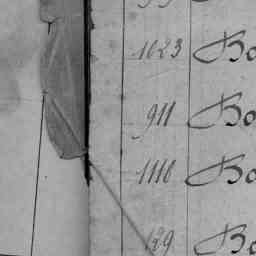 1623 Bo
911 Bo
1118 Bo
129 Bo